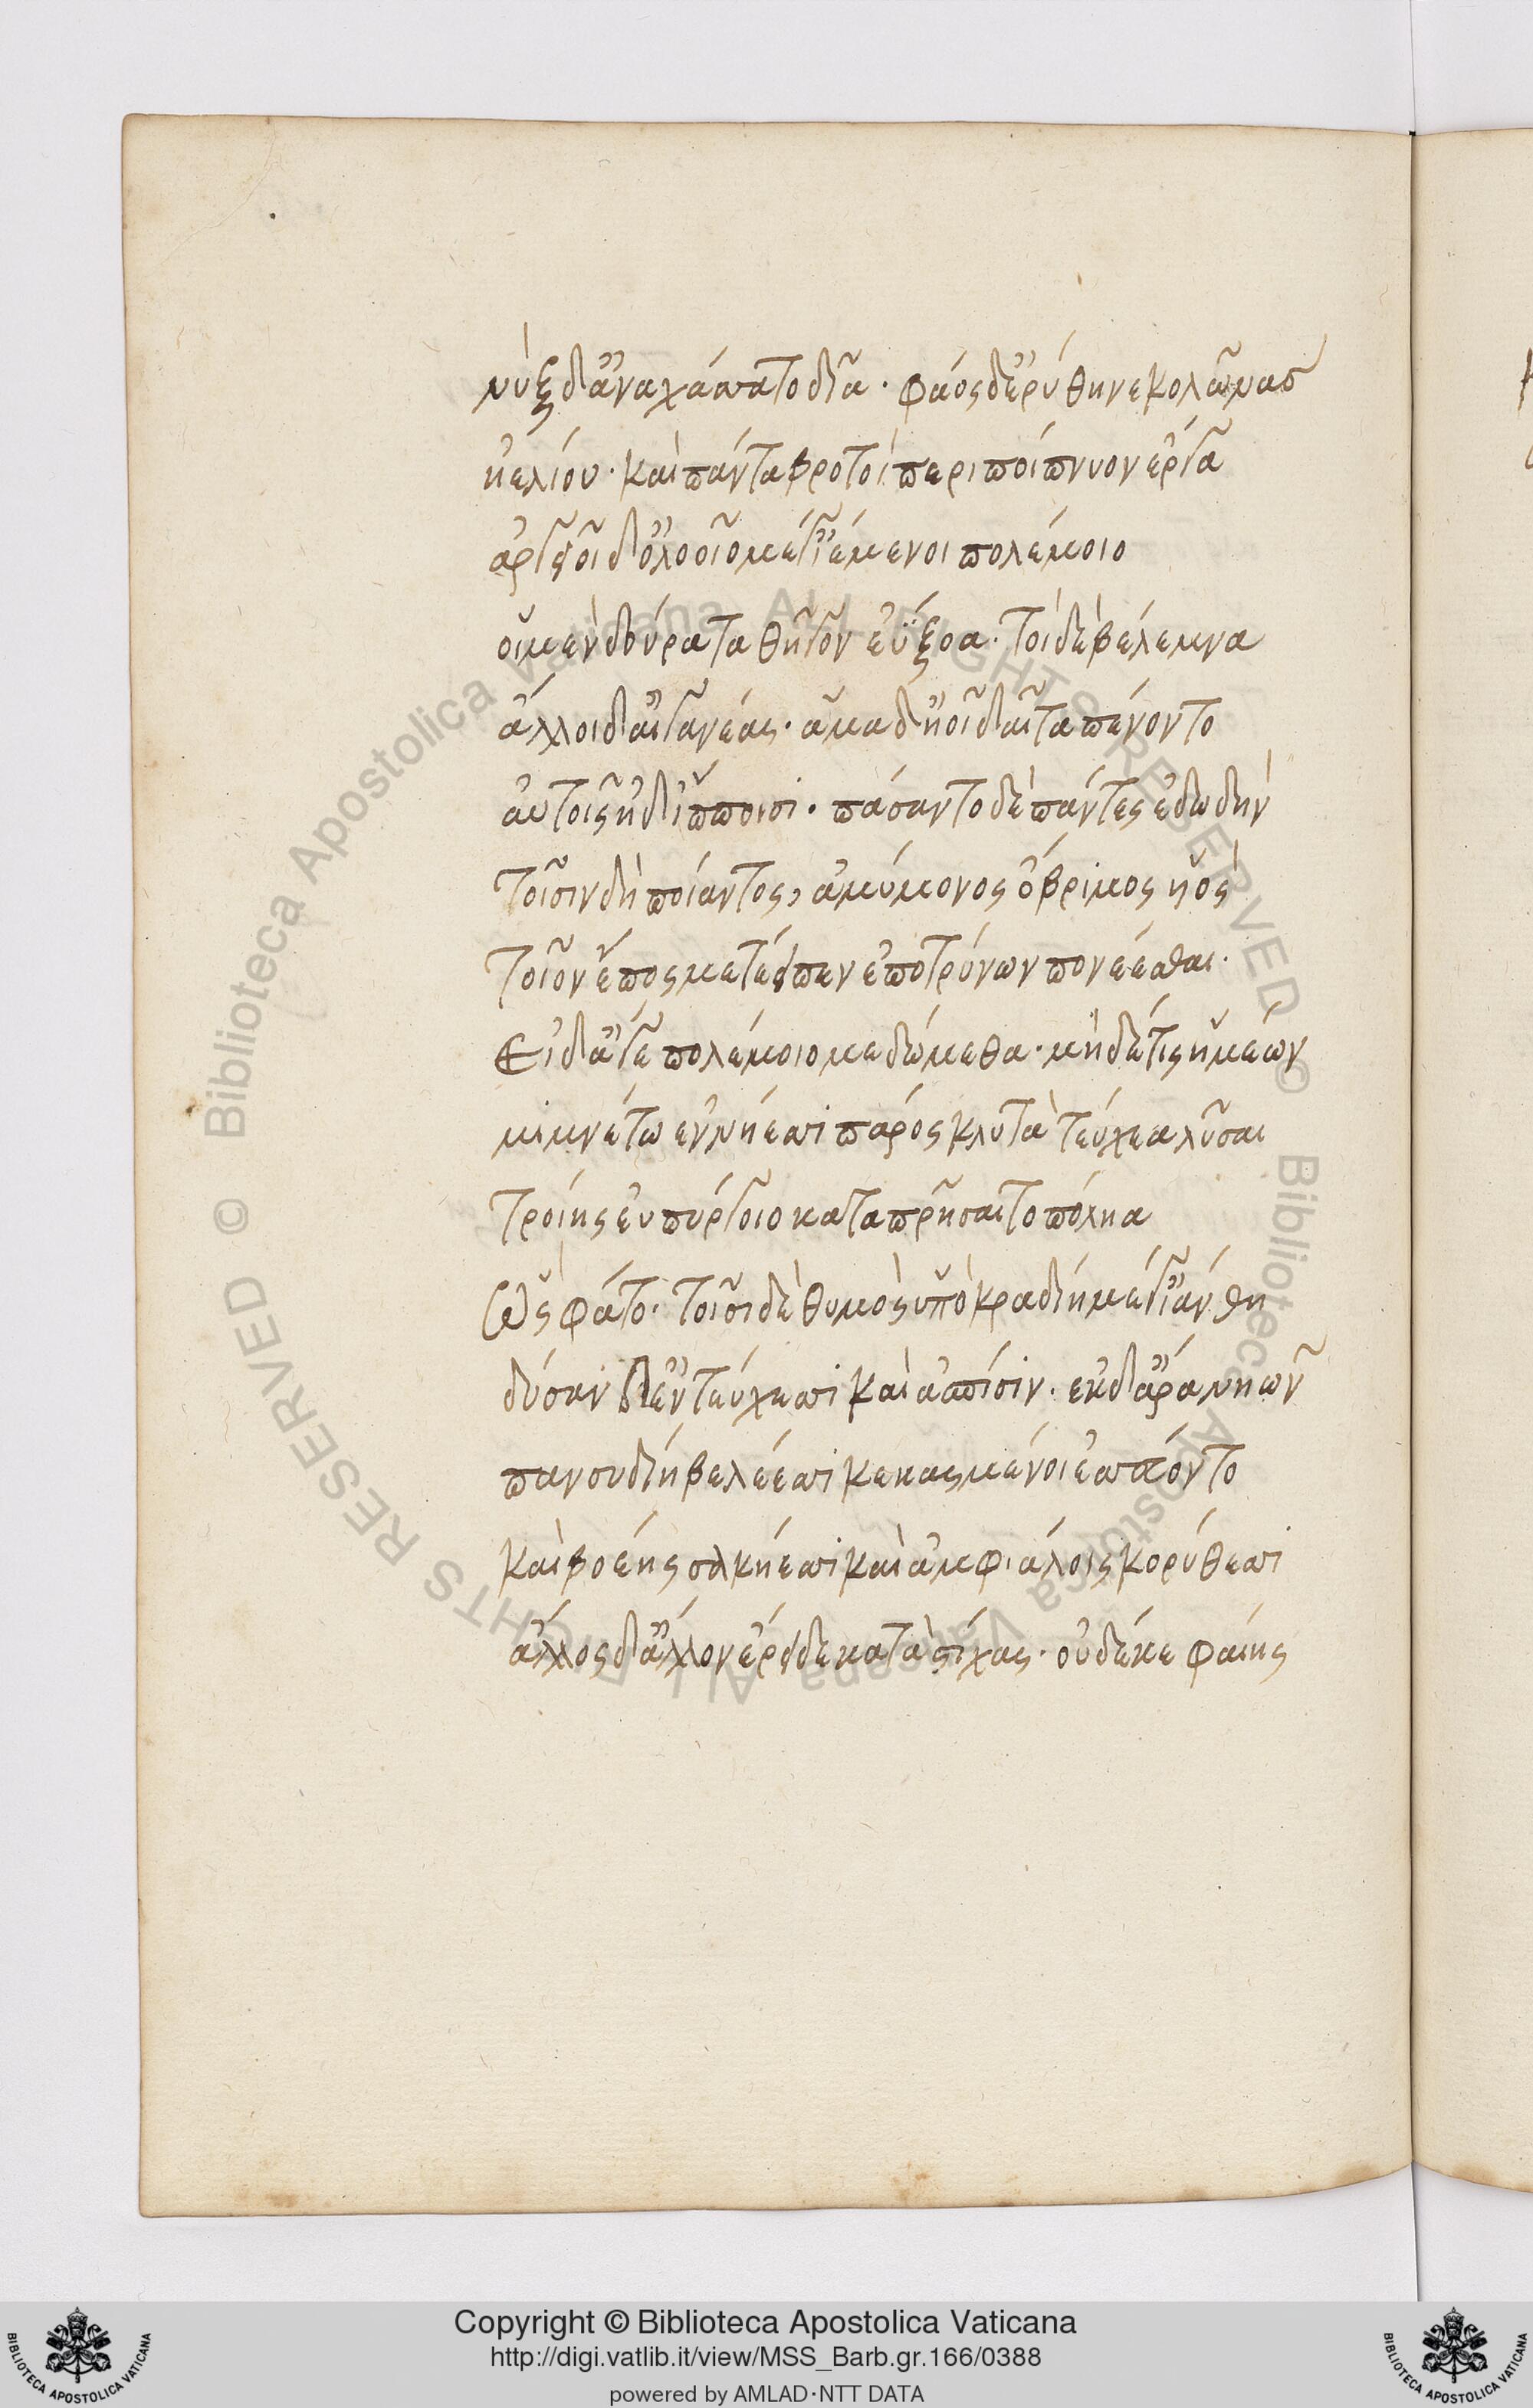 νὺξ δ' ἂν ἀχάσσατο δῖα· φάος δ' ἐρύθηνε κολῶνας
ἠελίου· καὶ πάντα βροτοὶ περιποίπνυον ἔργα
ἀργεῖοι δ' ὀλοοῖο μέγ' ἱέμενοι πολέμοιο
οἳ μὲν δούρατα θῆγον ἐΰξοα· τοὶ δὲ βέλεμνα
ἄλλοι δ' αἰγανέας· ἅμα δ' ἠοῖ δαῖτα πένοντο
αὐτοῖς ἠδ' ἵπποισι· πάσαντο δὲ πάντες ἐδωδὴν
τοῖσιν δὴ ποίαντος, ἀμύμονος ὄβριμος υἱὸς
τοῖον ἔπος μετέειπεν ἐποτρύνων πονέεσθαι.
Εἰ δ' ἄγε πολέμοιο μεδώμεθα· μὴ δέ τις ἡμέων
μιμνέτω ἐν νήεσσι πάρος κλυτὰ τεύχεα λῦσαι
τροίης εὐπύργοιο καταπρῆσαί τε πόληα
Ὣς φάτο· τοῖσι δὲ θυμὸς ὑπὸ κραδίη μέγ' ἰάνθη
δύσαν δ' ἐν τεύχεσσι καὶ ἀσπίσιν· ἐκ δ' ἄρα νηῶν
πανσυδίη βελέεσσι κεκασμένοι ἐσσεύοντο
καὶ βοέης σακέεσσι καὶ ἀμφιάλοις κορύθεσσι
ἄλλος δ' ἄλλον ἔρειδε κατὰ στίχας· οὐδέ κε φαίης
Copyright © Biblioteca Apostolica Vaticana
http://digi.vatlib.it/view/MSS_Barb.gr.166/0388
powered by AMLAD·NTT DATA